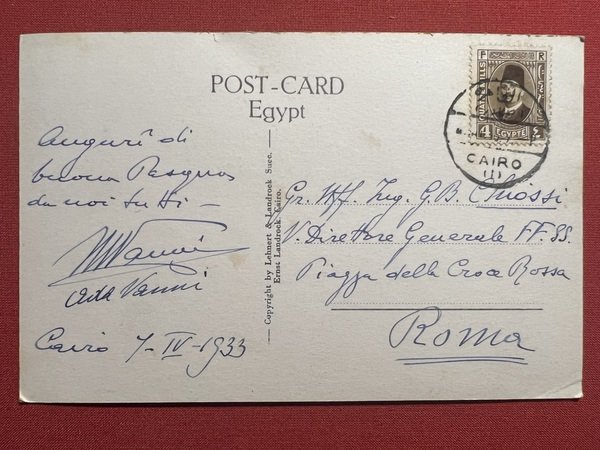 POST-CARD
Egypt
Auguri di
buona Pasqua
da noi tutti –
MVanni
Ada Vanni
Cairo 7-IV-1933
Copyright by Lehnert & Landrock Succ.
Ernst Landrock Cairo.
F R
4 EGYPTE ٤
CAIRO
(1)
Gr. Uff. Ing. G.B. Chiossi
V. Direttore Generale FF. SS.
Piazza della Croce Rossa
Roma